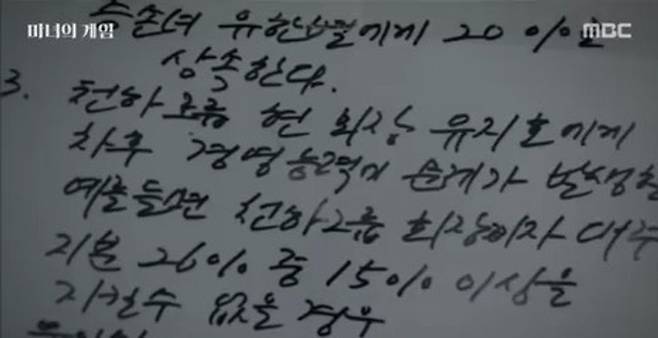 마녀의 게임
MBC
증손녀 유한별에게 20%를
상속한다.
3. 천하그룹 현 회장 유지호에게
차후 경영능력에 문제가 발생할
예를들면 천하그룹 회장이자 대주
지분 26% 중 15% 이상을
지킬수 없을 경우